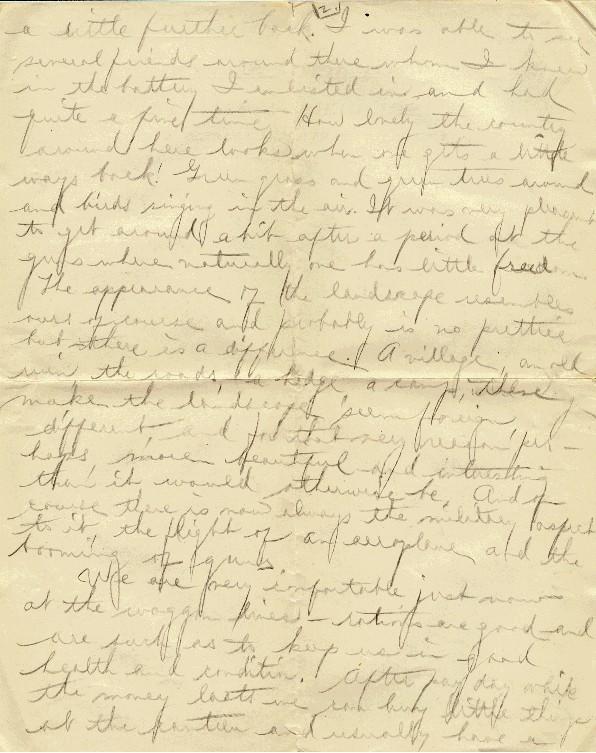 2.
a little further back. I was able to see
several friends around there whom I knew
in the battery I enlisted in and had
quite a fine time. How lovely the country
around here looks when one gets a little
ways back! Green grass and green trees around
and birds singing in the air. It was very pleasant
to get around a bit after a period at the
guns where naturally one has little freedom.
The appearance of the landscape resembles
ours of course and probably is no prettier
but there is a difference. A village, an old
ruin, the roads, a hedge, a camp, these
make the landscape seem foreign,
different and for that very reason per-
haps more beautiful and interesting
than it would otherwise be. And of
course there is now always the military aspect
to it, the flight of an aeroplane, and the
booming of guns.
We are very comfortable just now
at the waggon lines – rations are good and
are such as to keep us in good
health and condition. After pay day while
the money lasts we can buy little things
at the canteen and usually have a